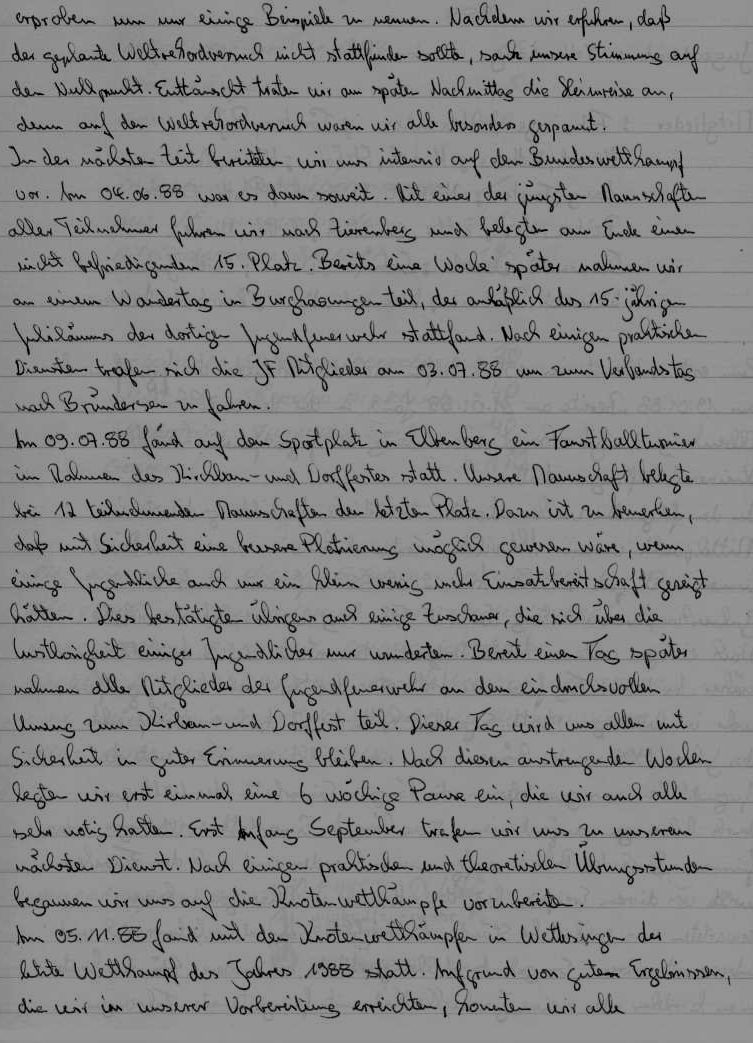 erproben um nur einige Beispiele zu nennen. Nachdem wir erfuhren, daß
der geplante Weltrekordversuch nicht stattfinden sollte, sank unsere Stimmung auf
den Nullpunkt. Enttäuscht traten wir am späten Nachmittag die Heimreise an,
denn auf den Weltrekordversuch waren wir alle besonders gespannt.
In der nächsten Zeit bereiteten wir uns intensiv auf den Bundeswettkampf
vor. Am 04.06.88 war es dann soweit. Mit einer der jüngsten Mannschaften
aller Teilnehmer fuhren wir nach Zierenberg und belegten am Ende einen
nicht befriedigenden 15. Platz. Bereits eine Woche später nahmen wir
an einem Wandertag in Burghasungen teil, der anläßlich des 15-jährigen
Jubiläums der dortigen Jugendfeuerwehr stattfand. Nach einigen praktischen
Diensten trafen sich die JF Mitglieder am 03.07.88 um zum Verbandstag
nach Bründersen zu fahren.
Am 09.07.88 fand auf dem Sportplatz in Elbenberg ein Faustballturnier
im Rahmen des Kirchbau- und Dorffestes statt. Unsere Mannschaft belegte
bei 12 teilnehmenden Mannschaften den letzten Platz. Dazu ist zu bemerken,
daß mit Sicherheit eine bessere Platzierung möglich gewesen wäre, wenn
einige Jugendliche auch nur ein klein wenig mehr Einsatzbereitschaft gezeigt
hätten. Dies bestätigten übrigens auch einige Zuschauer, die sich über die
Lustlosigkeit einiger Jugendlicher nur wunderten. Bereit einen Tag später
nahmen alle Mitglieder der Jugendfeuerwehr an dem eindrucksvollen
Umzug zum Kirbau- und Dorffest teil. Dieser Tag wird uns allen mit
Sicherheit in guter Erinnerung bleiben. Nach diesen anstrengenden Wochen
legten wir erst einmal eine 6 wöchige Pause ein, die wir auch alle
sehr nötig hatten. Erst Anfang September trafen wir uns zu unserem
nächsten Dienst. Nach einigen praktischen und theoretischen Übungsstunden
begannen wir uns auf die Knotenwettkämpfe vorzubereiten.
Am 05.11.88 fand mit den Knotenwettkämpfen in Wettesingen der
letzte Wettkampf des Jahres 1988 statt. Aufgrund von guten Ergebnissen,
die wir in unserer Vorbereitung erreichten, konnten wir alle